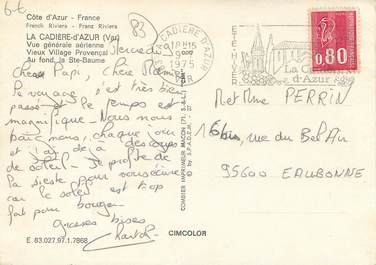 6-6
83
Côte d'Azur - France
French Riviera - Franz Riviera
LA CADIÈRE-d'AZUR (Var)
Vue générale aérienne
Vieux Village Provençal
Au fond, la Ste-Baume
Mercredi
Cher Papi, Chère Mamie
le voyage s'est très bien
passé et le temps est
magnifique. Nous nous
baignons, chaque jour
et j'ai déjà des coups
de soleil. Je profite de
la sieste pour vous écrire
car le soleil est trop
fait pour bouger
grosses bises
E 83.027.97.1.7868
CIMCOLOR
COMBIER IMPRIMEUR MACON (Pl. S.-&-L.)
© by S.P.A.D.E.M.
LA CADIERE D'AZUR
18H15
1975
ETE HIVER
La Ca
d'Azur
0,80
M et Mme PERRIN
16bis, rue du Bel Air
95600 EAUBONNE